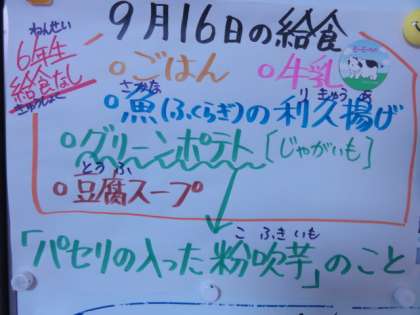 9月16日の給食
ねんせい
6年生
給食なし
きゅうしょく
○ごはん ○牛乳
さかな りきゅうあ
○魚(ふくらぎ)の利久揚げ
○グリーンポテト[じゃがいも]
とうふ
○豆腐スープ
こふきいも
「パセリの入った粉吹芋」のこと